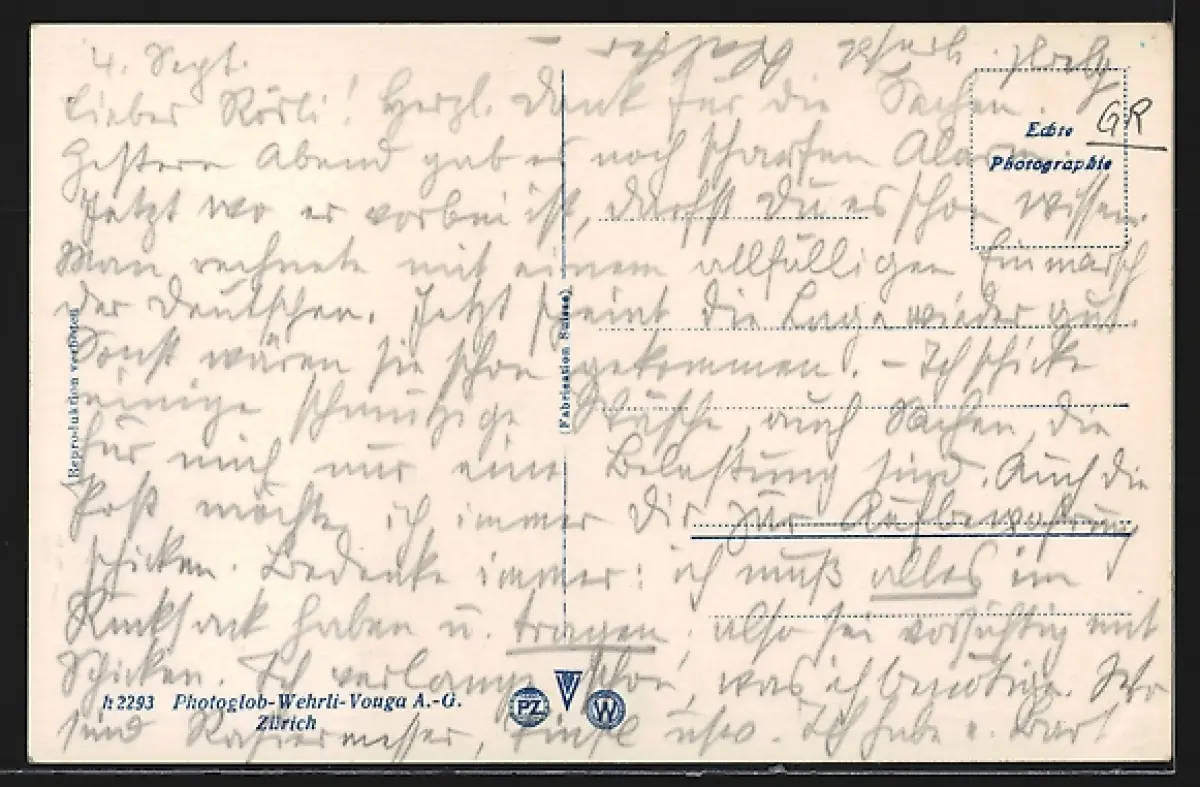 4. Sept.
Lieber Rösli! Herzl. Dank für die Sachen.
Gestern Abend gab es noch scharfen Alarm.
Jetzt wo er vorbei ist, darfst Du es schon wissen.
Man rechnete mit einem allfälligen Einmarsch
der Deutschen. Jetzt scheint die Lage wieder gut.
Sonst wären sie schon gekommen. - Ich schicke
einige schmutzige Wäsche, auch Sachen, die
für mich nur eine Belastung sind. Auch die
Post möchte ich immer Dir zur Aufbewahrung
schicken. Bedenke immer: ich muß alles im
Rucksack haben u. tragen, also sei vorsichtig mit
Schicken. Ich verlange schon, was ich benötige. Wo
sind Rasiermesser, Pinsel usw. Ich habe e. Bart
GR
Echte
Photographie
Reproduktion verboten
(Fabrication Suisse)
h2293 Photoglob-Wehrli-Vouga A.-G.
Zürich
PZ
V
W